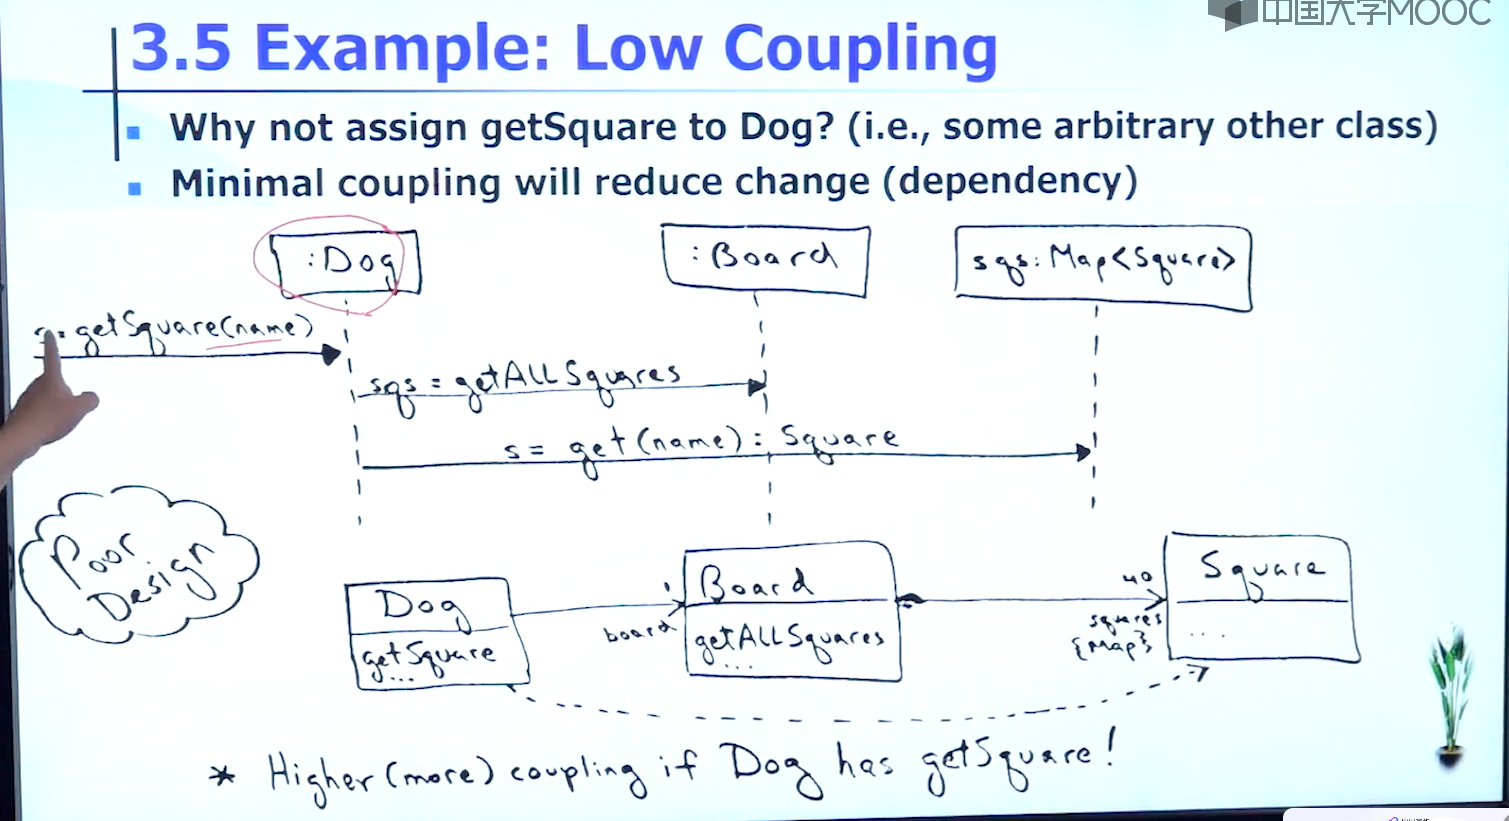 中国大学MOOC
3.5 Example: Low Coupling
Why not assign getSquare to Dog? (i.e., some arbitrary other class)
Minimal coupling will reduce change (dependency)
:Dog
:Board
sqs: Map<Square>
getSquare(name)
sqs = getAllSquares
s = get(name): Square
Poor
Design
Dog
getSquare
...
1
board
Board
getAllSquares
...
40
squares
{Map}
Square
....
* Higher (more) coupling if Dog has getSquare!